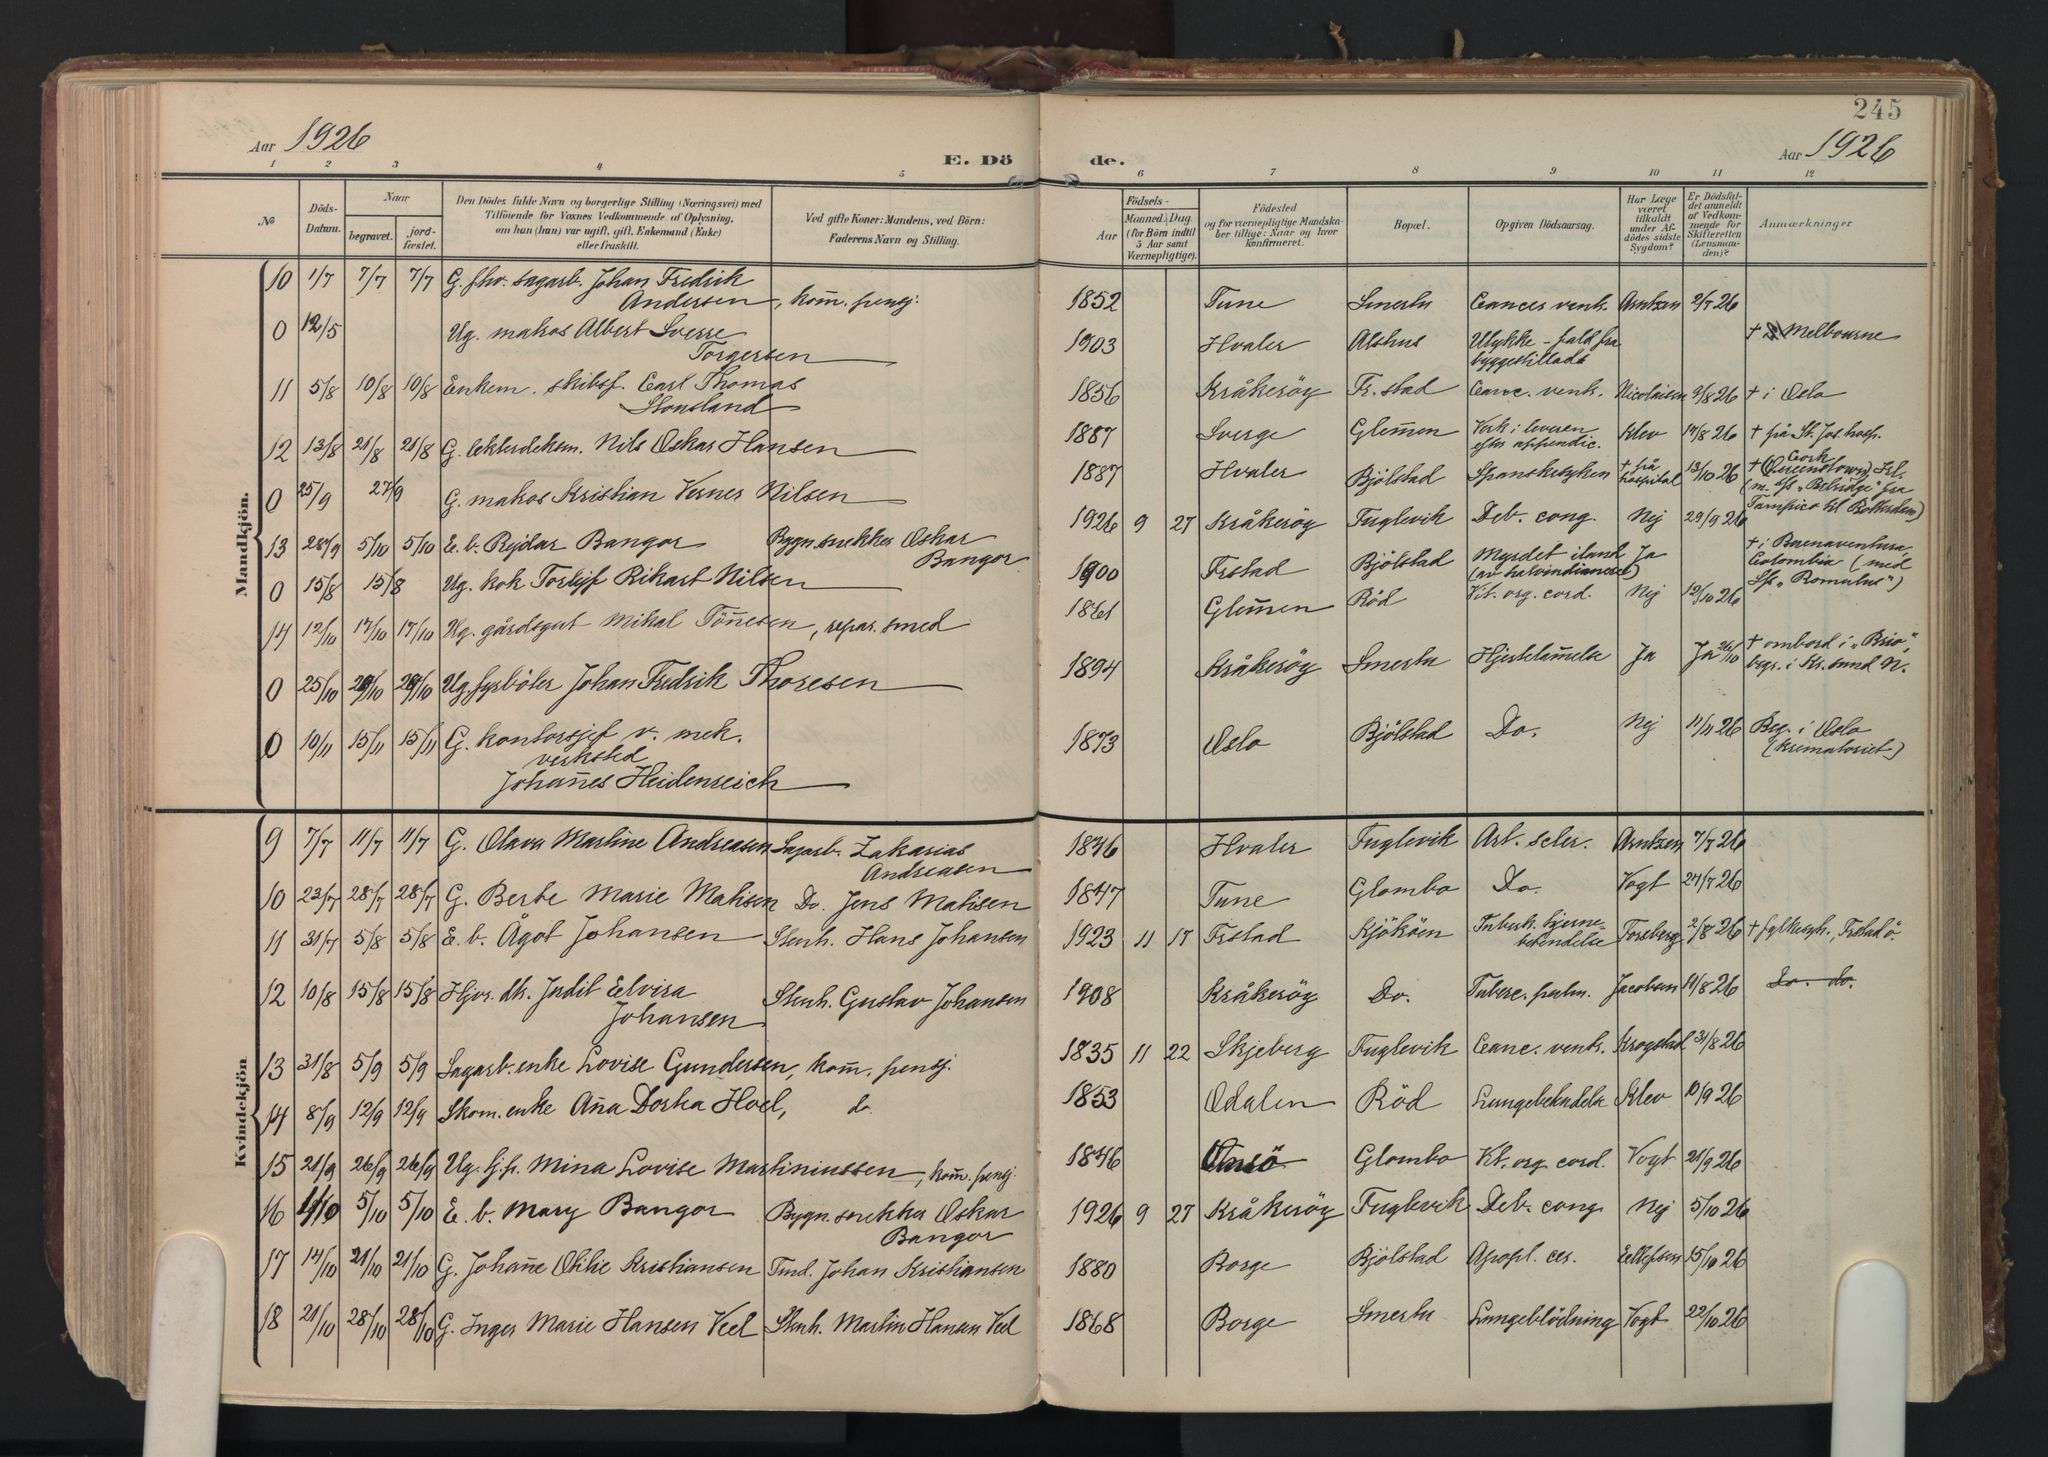 245
Aar 1926
E. Dö
de.
Aar 1926
1 2 3 4 5 6 7 8 9 10 11 12
No
Döds-Datum.
Naar
begravet.
jord-fæstet.
Den Dödes fulde Navn og borgerlige Stilling (Næringsvei) med
Tilföiende for Voxnes Vedkommende af Oplysning,
om han (hun) var ugift, gift, Enkemand (Enke)
eller fraskilt.
Ved gifte Koner: Mandens, ved Börn:
Faderens Navn og Stilling.
Födsels-
Aar
Maaned. Dag.
(for Börn indtil
5 Aar samt
Værnepligtige).
Födested
og for værnepligtige Mandska-
ber tillige: Naar og hvor
konfirmeret.
Bopæl.
Opgiven Dödsaarsag.
Har Læge
været
tilkaldt
under Af-
dödes sidste
Sygdom?
Er Dödsfal-
det anmeldt
af Vedkom-
mende for
Skifteretten
(Lensman-
den)?
Anmærkninger
Mandkjön.
10 1/7 7/7 7/7 G. fhv. sagarb. Johan Fredrik
Andersen, kom. pensj. 1852 Tune Smertu Cances ventr. Arntzen 2/7 26
0 12/5 Ug. matros Albert Sverre
Torgersen 1903 Hvaler Alshus Ulykke - fald fra
byggestillads † Melbourne
11 5/8 10/8 10/8 Enkem. skibsf. Carl Thomas
Stousland 1856 Kråkeröy Fr.stad Canc. ventr. Nicolaisen 9/8 26 † i Oslo
12 13/8 21/8 21/8 G. lekterdeksm. Nils Oskar Hansen 1887 Sverge Glemmen Verk i leveren
efter appendic. Klev 14/8 26 † på St. Jos. hosp.
0 25/9 27/9 G. matros Kristian Verner Nilsen 1887 Hvaler Bjölstad Spanskesyken † på
hospital 13/10 26 † Cork
(Queenstown) Irl.
(m. s/s "Belridge" fra
Tampico til Rotterdam)
13 28/9 5/10 5/10 E. b. Rejdar Bangor Bygn.snekker Oskar
Bangor 1926 9 27 Kråkeröy Fuglevik Deb. cong. Nej 29/9 26
0 15/8 15/8 Ug. kok Torlejf Rikart Nilsen 1900 Frstad Bjölstad Myrdet i land
(av halvindianere) Ja † i Buenaventura,
Colombia (med
S/s "Romulus")
14 12/10 17/10 17/10 Ug. gårdsgut Mikal Tönnesen, repar. smed 1861 Glemmen Röd Vit. org. cord. Nej 12/10 26
0 25/10 29/10 29/10 Ug. fyrböter Johan Fredrik Thoresen 1894 Kråkeröy Smertu Hjertelammelse Ja Ja 26/10 † ombord i "Brio",
begr. i Kr.sund N.
0 10/11 15/11 15/11 G. kontorsjef v. mek.
verksted
Johannes Heidenreich 1873 Oslo Bjölstad Do. Nej 11/11 26 Beg. i Oslo
(krematoriet)
Kvindekjön
9 7/7 11/7 11/7 G. Olava Martine Andreasen Sagarb. Zakarias
Andreasen 1846 Hvaler Fuglevik Art. scler. Arntzen 7/7 26
10 23/7 28/7 28/7 G. Berte Marie Matisen Do. Jens Matisen 1847 Tune Glombo Do. Vogt 24/7 26
11 31/7 5/8 5/8 E. b. Ågot Johansen Stenh. Hans Johansen 1923 11 17 Frstad Kjököen Tuberk. hjerne-
betendelse Torsberg 2/8 26 † fylkessyk., Frstad ö.
12 10/8 15/8 15/8 Hjv. dtr. Judit Elvira
Johansen Stenh. Gustav Johansen 1908 Kråkeröy Do. Tuberc. pulm. Jacobsen 11/8 26 Do. do.
13 31/8 5/9 5/9 Sagarb. enke Lovise Gundersen, kom. pensj. 1835 11 22 Skjeberg Fuglevik Canc. ventr. Krogstad 31/8 26
14 8/9 12/9 12/9 Skom. enke Anna Dortea Hoel, do. 1853 Odalen Röd Lungebetendelse Klev 10/9 26
15 21/9 26/9 26/9 Ug. hj.p. Mina Lovise Martiniussen, kom. pensj. 1846 Onsö Glombo Vit. org. cord. Vogt 21/9 26
16 1/10 5/10 5/10 E. b. Mary Bangor Bygn.snekker Oskar
Bangor 1926 9 27 Kråkeröy Fuglevik Deb. cong. Nej 5/10 26
17 14/10 21/10 21/10 G. Johanne Otilie Kristiansen Tind. Johan Kristiansen 1880 Borge Bjölstad Apopl. cer. Eellefsen 15/10 26
18 21/10 28/10 28/10 G. Inger Marie Hansen Veel Stenh. Martin Hansen Veel 1868 Borge Smertu Lungeblödning Vogt 22/10 26